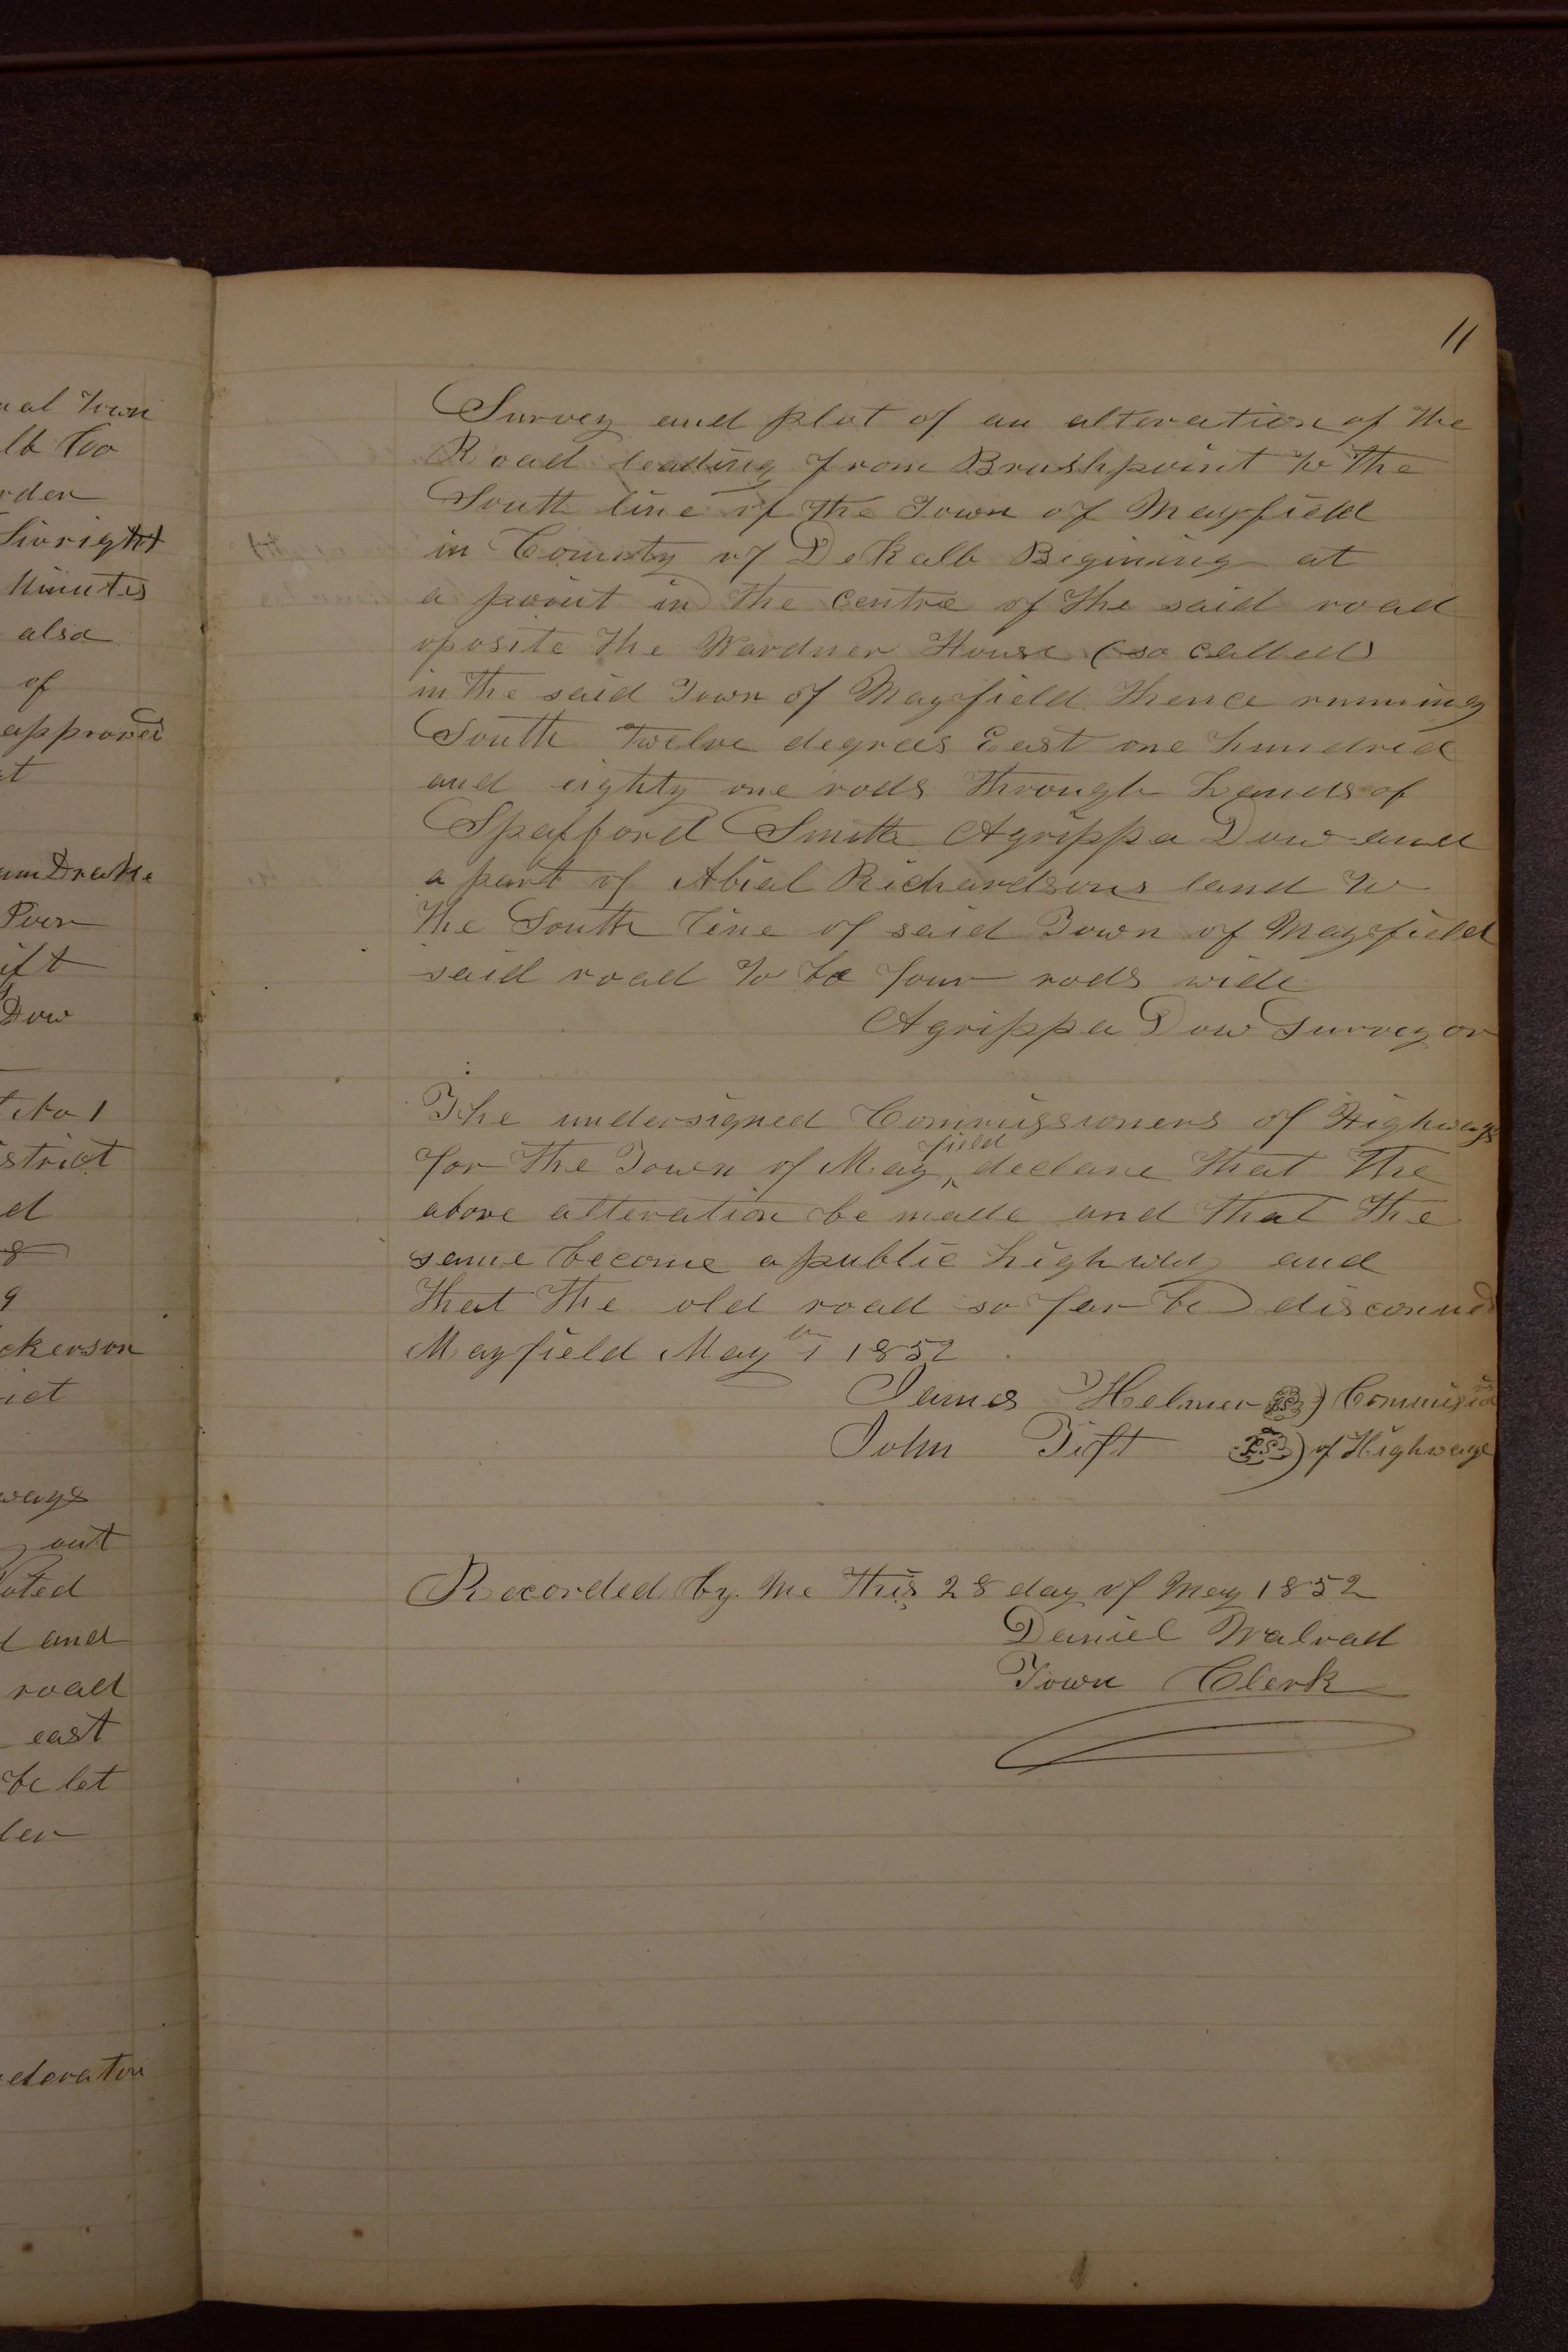 11
Survey and plat of an alteration of the
Road leading from Brushpoint to the
South line of the Town of Mayfield
in County of DeKalb Begining at
a point in the centre of the said road
oposite the Wardner House (so called)
in the said Town of Mayfield thence running
South Twelve degrees East one hundred
and eighty one rods through Lands of
Spafford Smith Agrippa Dow and
a part of Abial Richardsons land to
the South line of said Town of Mayfield
said road to be four rods wide
Agrippa Dow Surveyor
The undersigned Commissioners of Highways
for the Town of May^field declare that the
above alteration be made and that the
same become a public highway and
that the old road so far be
Mayfield May 1852
James Helmer LS)
John Tift LS) of Highways
Recorded by me this 28 day of May 1852
Daniel Walrad
Town Clerk
Town
too
Minutes
also
of
Drake
Dow
No 1
out
and
road
east
be let